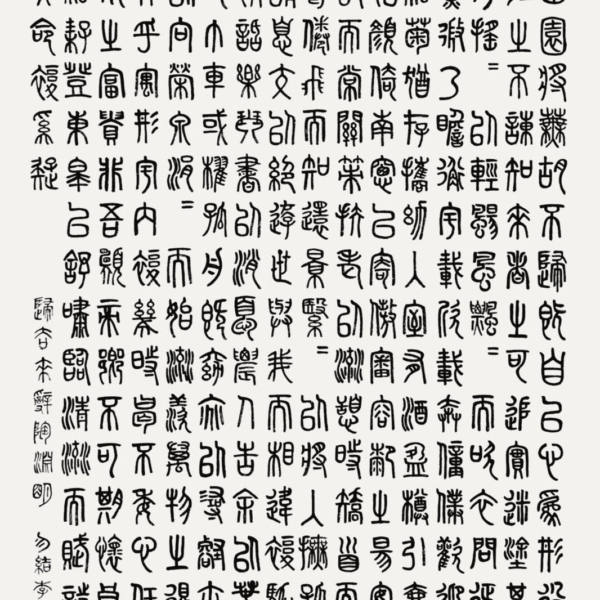 田園將蕪胡不歸既自以心為形役
之不諫知來者之可追實迷塗其
搖=以輕颺風飄=而吹衣問征
微乃瞻衡宇載欣載奔僮僕歡迎
菊猶存攜幼入室有酒盈樽引壺
怡顏倚南窗以寄傲審容膝之易安
設而常關策扶老以流憩時矯首而
鳥倦飛而知還景翳=以將入撫孤
請息交以絕遊世與我而相違復駕
話樂琴書以消憂農人告余以春
巾車或櫂孤舟既窈窕以尋壑亦
以向榮泉涓=而始流羨萬物之得
乎寓形宇內復幾時曷不委心任
之富貴非吾願帝鄉不可期懷良
耔登東皋以舒嘯臨清流而賦詩
天命復奚疑
歸去來辭陶淵明 勿結李